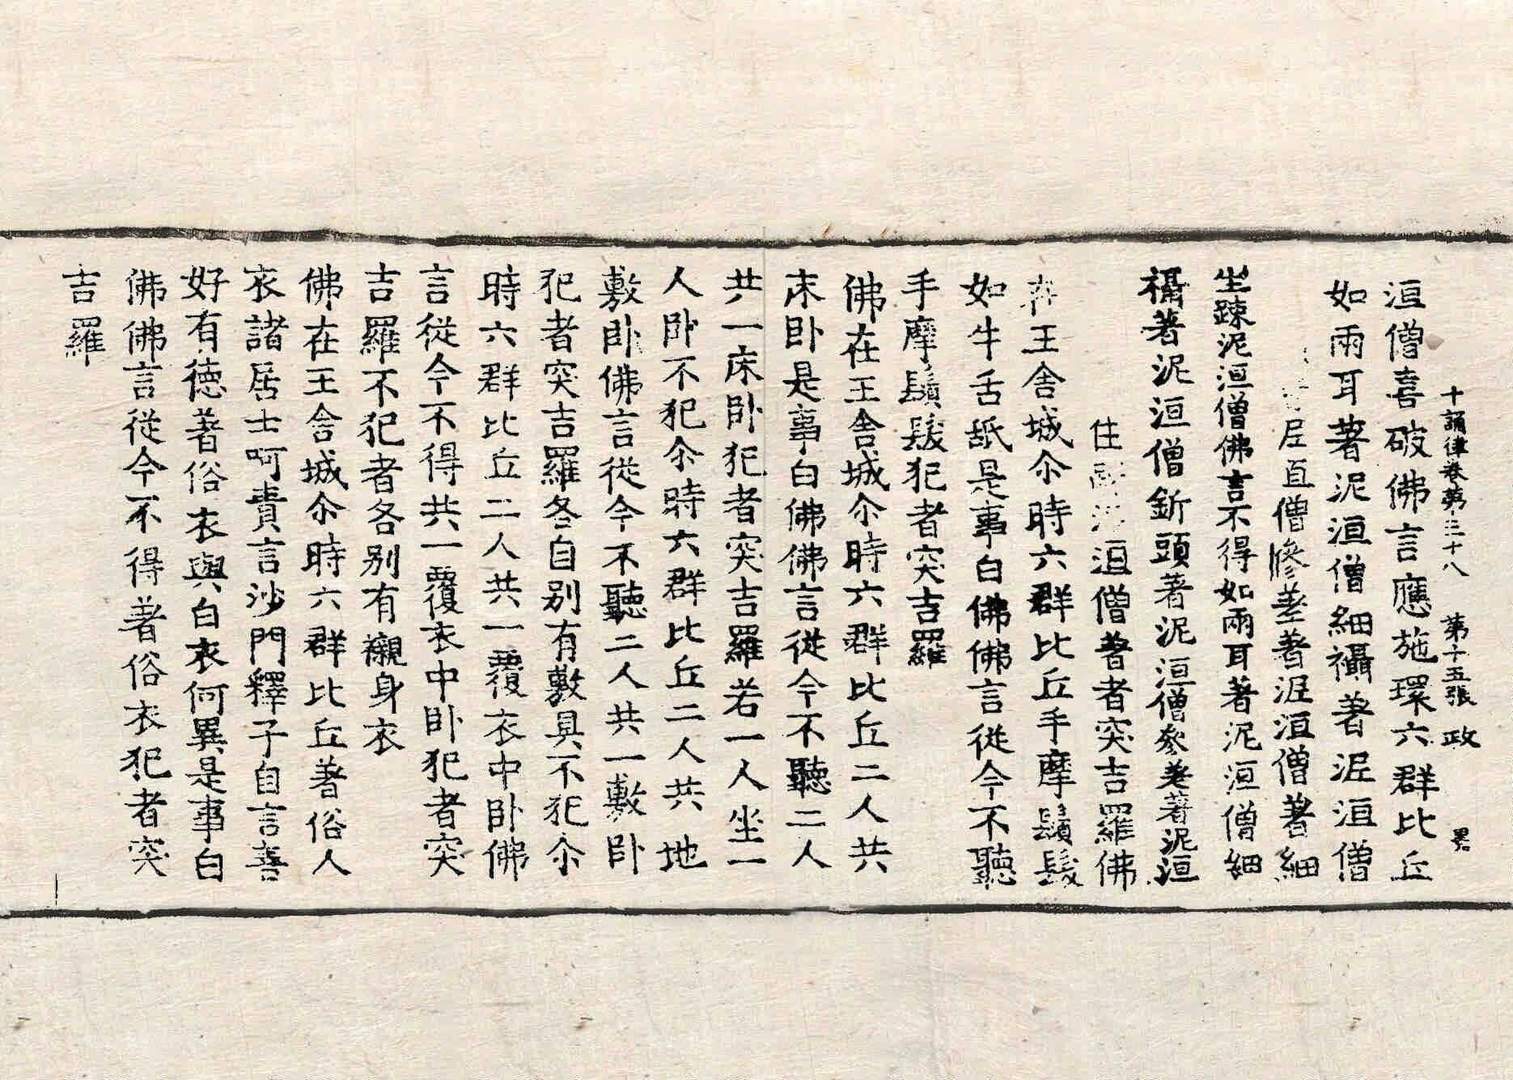 十誦律卷第三十八 第十五張 政
洹僧喜破佛言應施環六群比丘
如兩耳著泥洹僧細襵著泥洹僧
僧參差著泥洹僧著細
生踈泥洹僧佛言不得如兩耳著泥洹僧細
襵著泥洹僧釿頭著泥洹僧參差著泥洹
住洹僧著者突吉羅佛
在王舍城尒時六群比丘手摩鬚髮
如牛舌舐是事白佛佛言從今不聽
手摩鬚髮犯者突吉羅
佛在王舍城尒時六群比丘二人共
床卧是事白佛佛言從今不聽二人
共一床卧犯者突吉羅若一人坐一
人卧不犯尒時六群比丘二人共地
敷卧佛言從今不聽二人共一敷卧
犯者突吉羅冬自别有敷具不犯尒
時六群比丘二人共一覆衣中卧佛
言從今不得共一覆衣中卧犯者突
吉羅不犯者各别有襯身衣
佛在王舍城尒時六群比丘著俗人
衣諸居士呵責言沙門釋子自言善
好有德著俗衣與白衣何異是事白
佛佛言從今不得著俗衣犯者突
吉羅